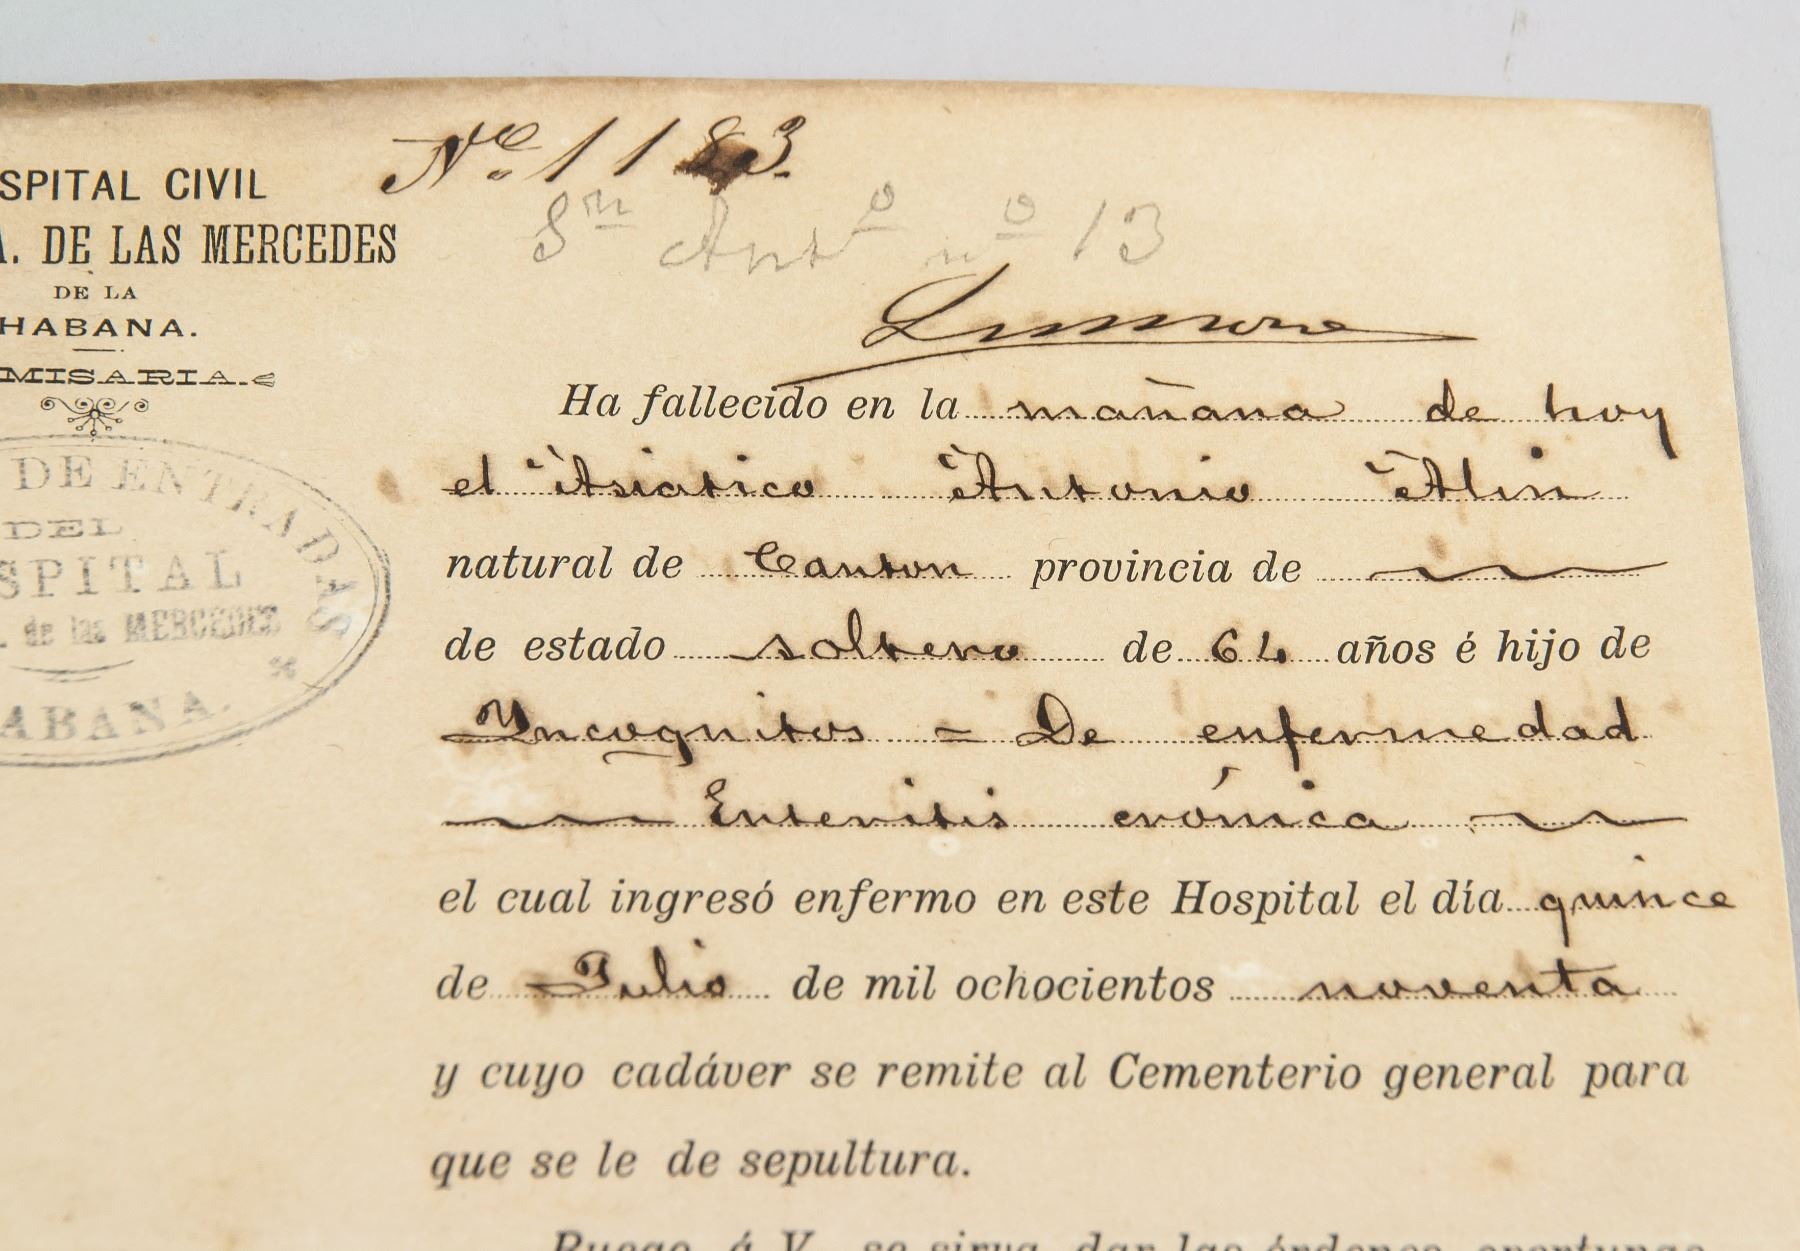 SPITAL CIVIL
A. DE LAS MERCEDES
DE LA
HABANA.
MISARIA.
DE ENTRADAS
DEL
SPITAL
de las MERCEDES
ABANA.
No. 1183.
Sn Anto no 13
Ha fallecido en la mañana de hoy
el Asiatico Antonio Alin
natural de Canton provincia de
de estado soltero de 64 años é hijo de
Yncognitos = De enfermedad
Enteritis crónica
el cual ingresó enfermo en este Hospital el día quince
de Julio de mil ochocientos noventa
y cuyo cadáver se remite al Cementerio general para
que se le de sepultura.
Ruego á V. se sirva dar las órdenes oportunas